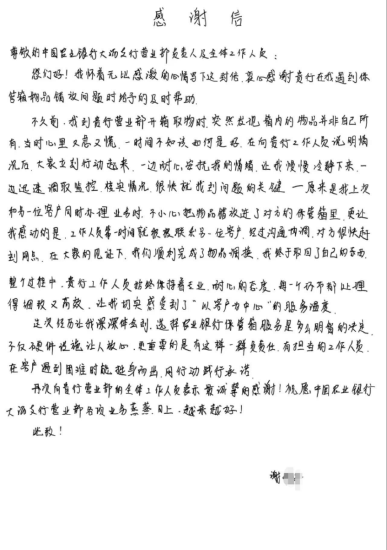 感谢信
尊敬的中国农业银行大沥支行营业部负责人及全体工作人员：
您们好！我怀着无比感激的心情写下这封信，衷心感谢贵行在我遇到保
管箱物品错放问题时给予的及时帮助。
不久前，我到贵行营业部开箱取物时，突然发现箱内的物品并非自己所
有，当时心里又急又慌，一时间不知该如何是好。在向贵行工作人员说明情
况后，大家立刻行动起来，一边耐心安抚我的情绪，让我慢慢冷静下来，一
边迅速调取监控，核实情况，很快就找到问题的关键——原来是我上次
和另一位客户同时办理业务时，不小心把物品错放进了对方的保管箱里。更让
我感动的是，工作人员第一时间就积极联系另一位客户，经过沟通协调，对方很快赶
到网点，在大家的见证下，我们顺利完成了物品调换，我终于取回了自己的东西。
整个过程中，贵行工作人员始终保持着专业、耐心的态度，每一个环节都处理
得细致又高效，让我切实感受到了“以客户为中心”的服务温度。
这次经历让我深深体会到，选择农业银行保管箱服务是多么明智的决定，
不仅硬件设施让人放心，更重要的是有这样一群负责任、有担当的工作人员，
在客户遇到困难时能挺身而出，用行动践行承诺。
再次向贵行营业部的全体工作人员表示最诚挚的感谢！祝愿中国农业银行
大沥支行营业部各项业务蒸蒸日上，越来越好！
此致！
谢